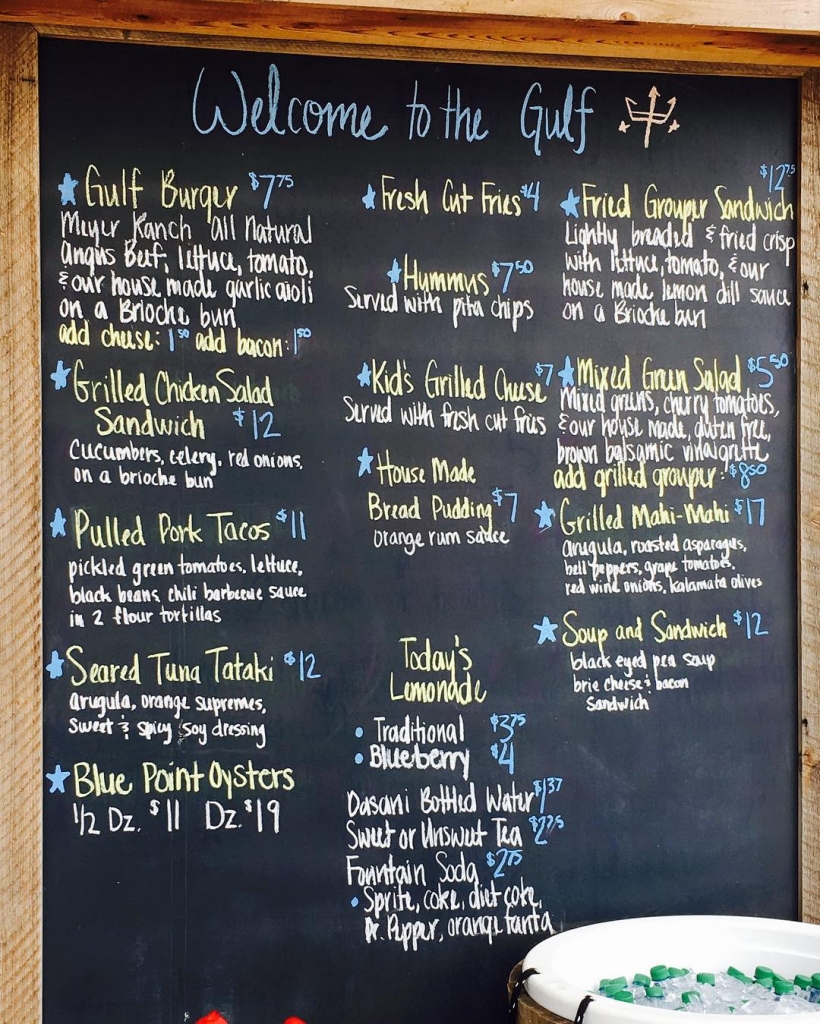 Welcome to the Gulf
Gulf Burger $7.75
Meyer Ranch all Natural
Angus Beef, lettuce, tomato,
& our house made garlic aioli
on a Brioche bun
add cheese: 1.50 add bacon: 1.50
Grilled Chicken Salad
Sandwich $12
Cucumbers, celery, red onions,
on a brioche bun
Pulled Pork Tacos $11
pickled green tomatoes, lettuce,
black beans chili barbecue sauce
in 2 flour tortillas
Seared Tuna Tataki $12
arugula, orange supremes,
sweet & spicy soy dressing
Blue Point Oysters
1/2 Dz. $11 Dz. $19
Fresh Cut Fries $4
Hummus $7.50
Served with pita chips
Kid's Grilled Cheese $7
Served with fresh cut fries
House Made
Bread Pudding $7
orange rum sauce
Today's
Lemonade
• Traditional $3.75
• Blueberry $4
Dasani Bottled Water $1.37
Sweet or Unsweet Tea $2.25
Fountain Soda $2.75
• Sprite, coke, diet coke,
Dr. Pepper, orange fanta
$12.75
Fried Grouper Sandwich
Lightly breaded & fried crisp
with lettuce, tomato, & our
house made lemon dill sauce
on a Brioche bun
Mixed Green Salad $5.50
Mixed greens, cherry tomatoes,
& our house made, gluten free,
brown balsamic vinaigrette
add grilled grouper: $8.50
Grilled Mahi-Mahi $17
arugula, roasted asparagus,
bell peppers, grape tomatoes,
red wine onions, kalamata olives
Soup and Sandwich $12
black eyed pea soup
brie cheese & bacon
Sandwich